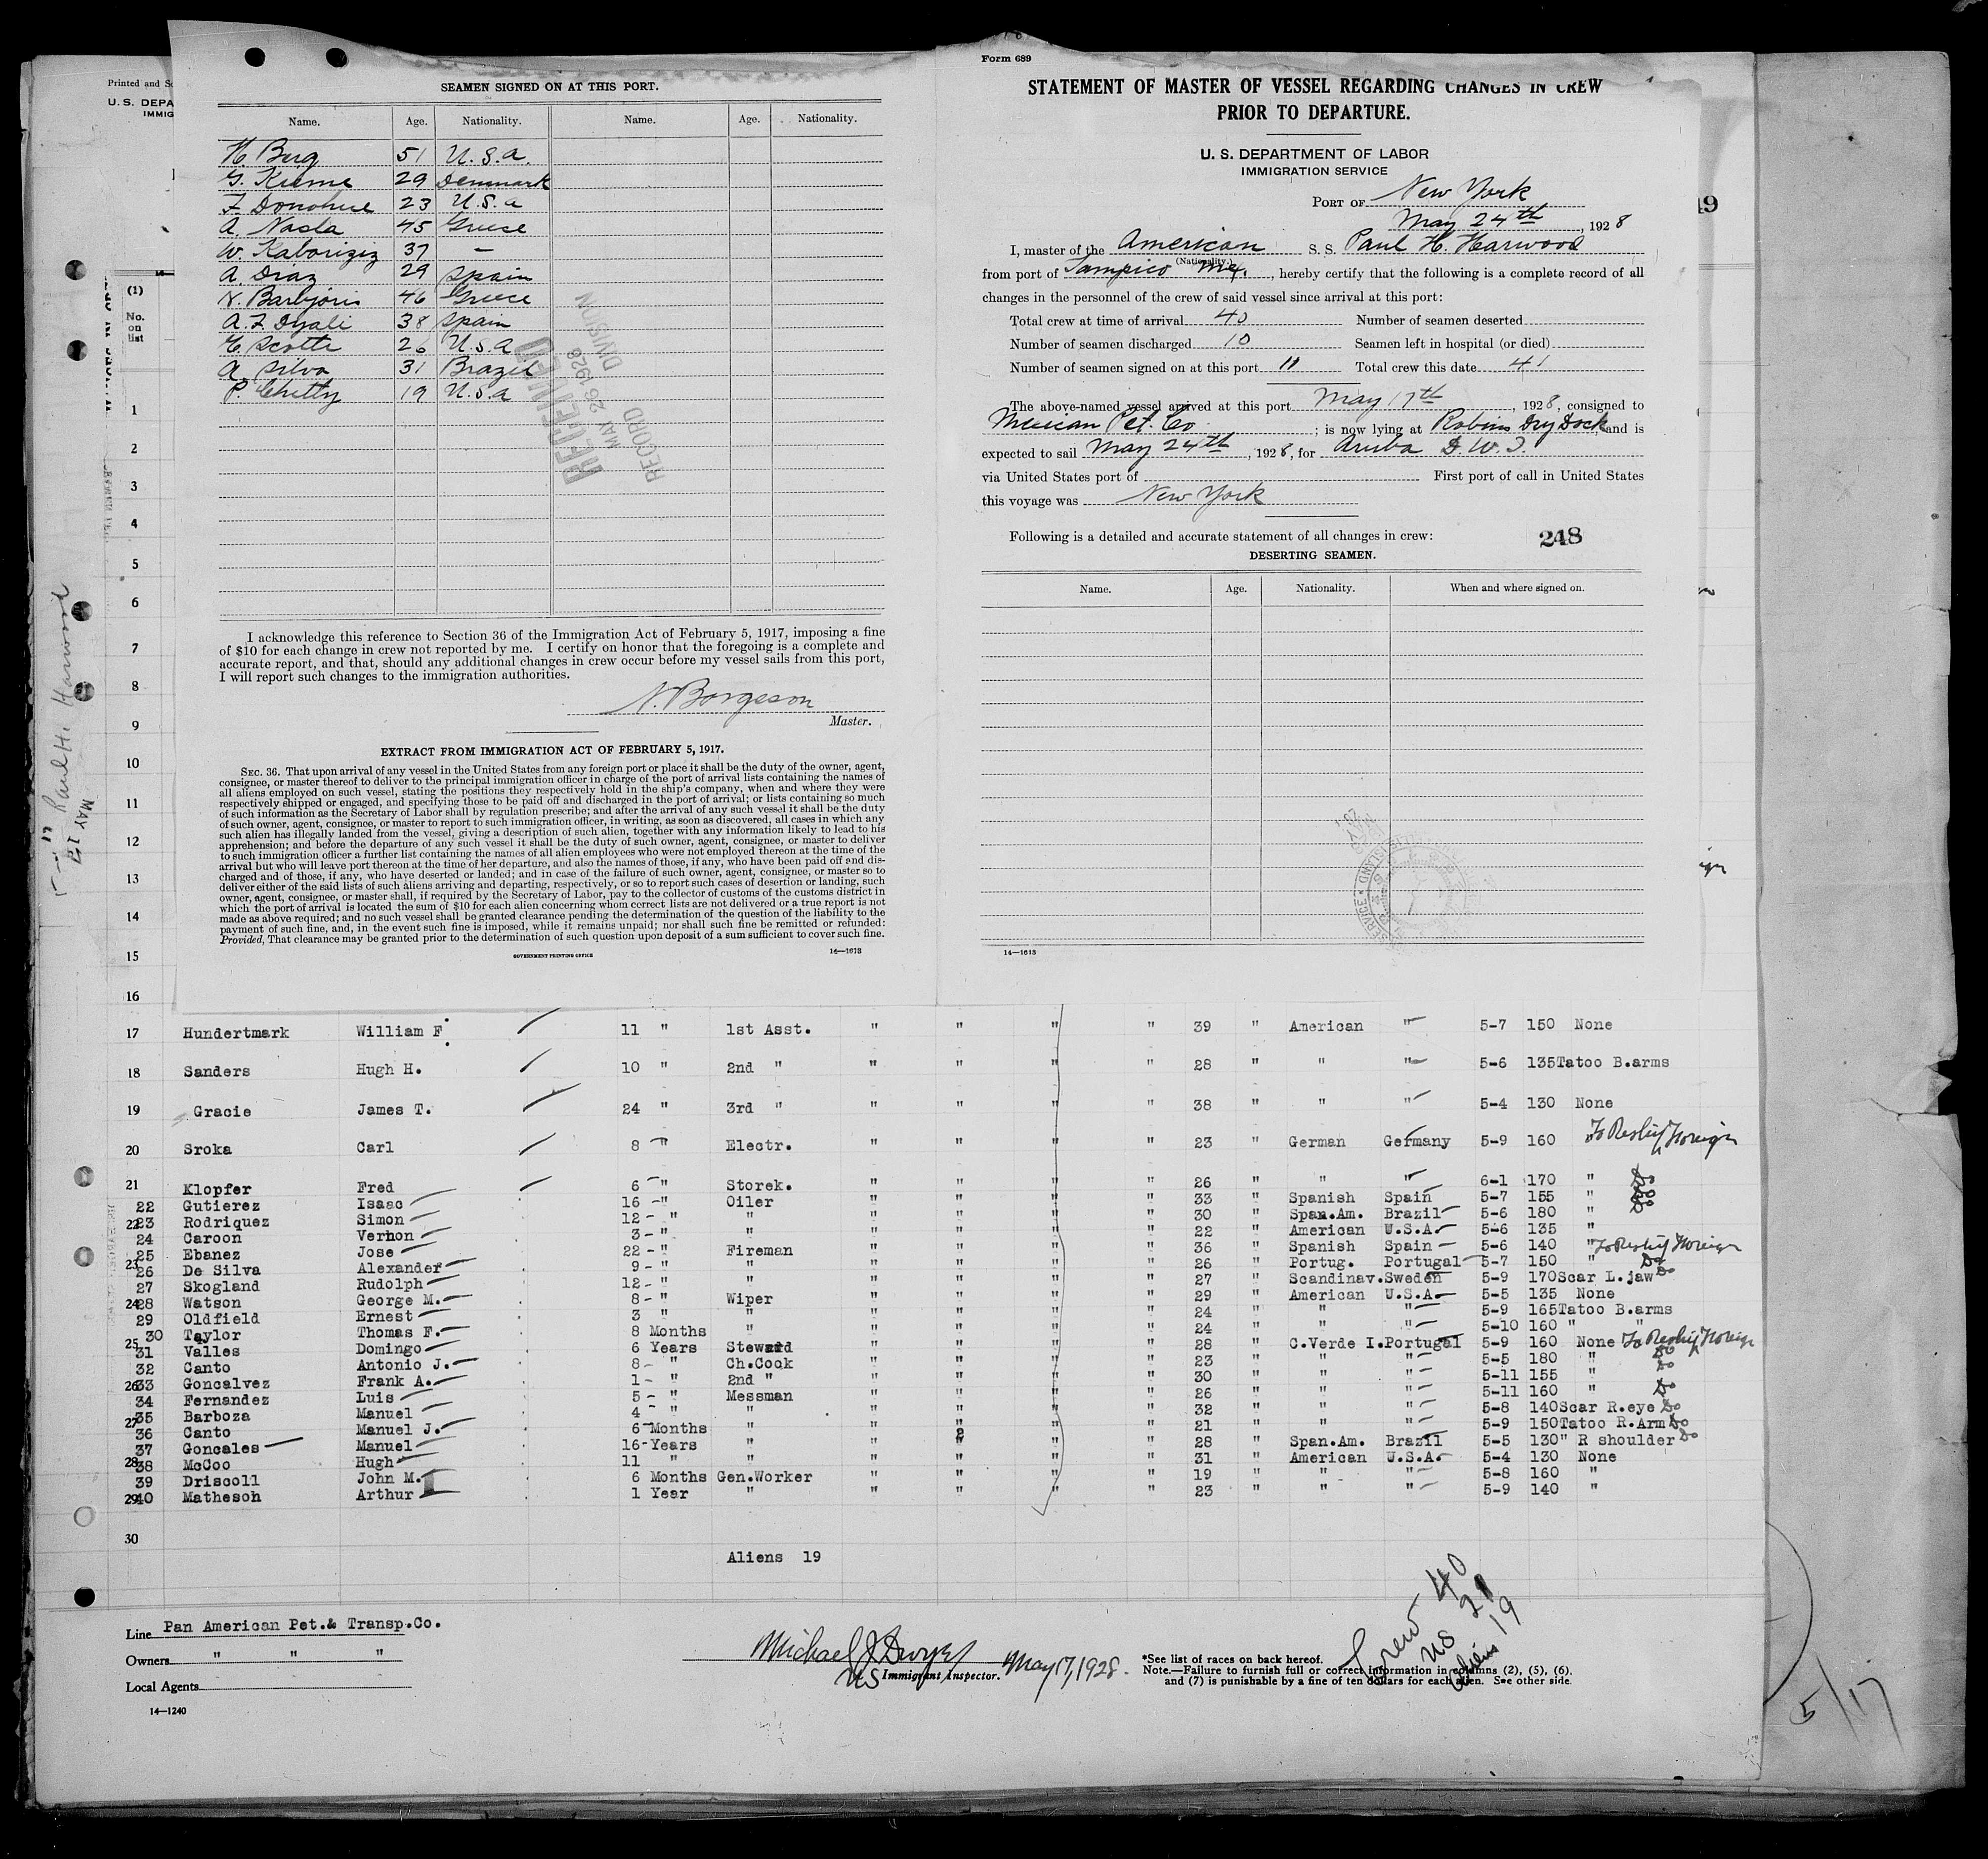 Printed and
U. S. DEPA
IMMIG
SEAMEN SIGNED ON AT THIS PORT.
Name. Age. Nationality. Name. Age. Nationality.
H. Berg 51 U. S. A.
29 Denmark
F. Donohue 23 U. S. a
A. Nasla 45
W. 37 –
A. Diaz 29 Spain
N. Barbjoris 46 Greece
A. F. Dyali 38 Spain
26 U. S. A
A. Silva 31 Brazil
P. Chitty 19 U. S. a
RECEIVED
MAY 26 1928
RECORD DIVISION
I acknowledge this reference to Section 36 of the Immigration Act of February 5, 1917, imposing a fine
of $10 for each change in crew not reported by me. I certify on honor that the foregoing is a complete and
accurate report, and that, should any additional changes in crew occur before my vessel sails from this port,
I will report such changes to the immigration authorities.
N. Borgeson
Master.
EXTRACT FROM IMMIGRATION ACT OF FEBRUARY 5, 1917.
SEC. 36. That upon arrival of any vessel in the United States from any foreign port or place it shall be the duty of the owner, agent,
consignee, or master thereof to deliver to the principal immigration officer in charge of the port of arrival lists containing the names of
all aliens employed on such vessel, stating the positions they respectively hold in the ship's company, when and where they were
respectively shipped or engaged, and specifying those to be paid off and discharged in the port of arrival; or lists containing so much
of such information as the Secretary of Labor shall by regulation prescribe; and after the arrival of any such vessel it shall be the duty
of such owner, agent, consignee, or master to report to such immigration officer, in writing, as soon as discovered, all cases in which any
such alien has illegally landed from the vessel, giving a description of such alien, together with any information likely to lead to his
apprehension; and before the departure of any such vessel it shall be the duty of such owner, agent, consignee, or master to deliver
to such immigration officer a further list containing the names of all alien employees who were not employed thereon at the time of the
arrival but who will leave port thereon at the time of her departure, and also the names of those, if any, who have been paid off and dis-
charged and of those, if any, who have deserted or landed; and in case of the failure of such owner, agent, consignee, or master so to
deliver either of the said lists of such aliens arriving and departing, respectively, or so to report such cases of desertion or landing, such
owner, agent, consignee, or master shall, if required by the Secretary of Labor, pay to the collector of customs of the customs district in
which the port of arrival is located the sum of $10 for each alien concerning whom correct lists are not delivered or a true report is not
made as above required; and no such vessel shall be granted clearance pending the determination of the question of the liability to the
payment of such fine, and, in the event such fine is imposed, while it remains unpaid; nor shall such fine be remitted or refunded:
Provided, That clearance may be granted prior to the determination of such question upon deposit of a sum sufficient to cover such fine.
GOVERNMENT PRINTING OFFICE 14—1613
Form 689
STATEMENT OF MASTER OF VESSEL REGARDING CHANGES IN CREW
PRIOR TO DEPARTURE.
U. S. DEPARTMENT OF LABOR
IMMIGRATION SERVICE
PORT OF New York
May 24th, 1928
I, master of the American S. S. Paul H. Harwood
(Nationality.)
from port of Tampico Mex., hereby certify that the following is a complete record of all
changes in the personnel of the crew of said vessel since arrival at this port:
Total crew at time of arrival 40 Number of seamen deserted
Number of seamen discharged 10 Seamen left in hospital (or died)
Number of seamen signed on at this port 11 Total crew this date 41
The above-named vessel arrived at this port May 17th, 1928, consigned to
Mexican Pet. Co; is now lying at Robins Dry Dock, and is
expected to sail May 24th, 1928, for Aruba D. W. I.
via United States port of First port of call in United States
this voyage was New York
Following is a detailed and accurate statement of all changes in crew: 248
DESERTING SEAMEN.
Name. Age. Nationality. When and where signed on.
14—1613
(1)
No.
on
list
1
2
3
4
5
6
7
8
9
10
11
12
13
14
15
16
Paul H. Harwood
MAY 17
17 Hundertmark William F. 11 " 1st Asst. " " " " 39 " American " 5-7 150 None
18 Sanders Hugh H. 10 " 2nd " " " " " 28 " " " 5-6 135 Tatoo B.arms
19 Gracie James T. 24 " 3rd " " " " " 38 " " " 5-4 130 None
20 Sroka Carl 8 " Electr. " " " " 23 " German Germany 5-9 160 " To Reship Foreign
21 Klopfer Fred 6 " Storek. " " " " 26 " " " 6-1 170 " Do
22 Gutierez Isaac 16 " Oiler " " " " 33 " Spanish Spain 5-7 155 " Do
23 Rodriquez Simon 12 " " " " " " 30 " Span.Am. Brazil 5-6 180 " Do
24 Caroon Vernon 3 " " " " " " 22 " American U.S.A. 5-6 135 "
25 Ebanez Jose 22 " Fireman " " " " 36 " Spanish Spain 5-6 140 " To Reship Foreign
26 De Silva Alexander 9 " " " " " " 26 " Portug. Portugal 5-7 150 " Do
27 Skogland Rudolph 12 " " " " " " 27 " Scandinav. Sweden 5-9 170 Scar L.jaw Do
28 Watson George M. 8 " Wiper " " " " 29 " American U.S.A. 5-5 135 None
29 Oldfield Ernest 3 " " " " " " 24 " " " 5-9 165 Tatoo B.arms
30 Taylor Thomas F. 8 Months " " " " " 24 " " " 5-10 160 " "
31 Valles Domingo 6 Years Steward " " " " 28 " C.Verde I. Portugal 5-9 160 None To Reship Foreign
32 Canto Antonio J. 8 " Ch.Cook " " " " 23 " " " 5-5 180 " Do
33 Goncalvez Frank A. 1 " 2nd " " " " " 30 " " " 5-11 155 " Do
34 Fernandez Luis 5 " Messman " " " " 26 " " " 5-11 160 " Do
35 Barboza Manuel 4 " " " " " " 32 " " " 5-8 140 Scar R.eye Do
36 Canto Manuel J. 6 Months " " " " " 21 " " " 5-9 150 Tatoo R.Arm Do
37 Goncales Manuel 16 Years " " " " " 28 " Span.Am. Brazil 5-5 130 " R shoulder Do
38 McCoo Hugh 11 " " " " " " 31 " American U.S.A. 5-4 130 None
39 Driscoll John M. 6 Months Gen.Worker " " " " 19 " " " 5-8 160 "
40 Matheson Arthur 1 Year " " " " " 23 " " " 5-9 140 "
30
Aliens 19
Crew 40
US 21
Aliens 19
Line Pan American Pet.& Transp.Co.
Owners " " "
Local Agents
14—1240
Michael J. Dwyer May 17, 1928.
US Immigrant Inspector.
*See list of races on back hereof.
Note.—Failure to furnish full or correct information in columns (2), (5), (6),
and (7) is punishable by a fine of ten dollars for each alien. See other side.
5/17